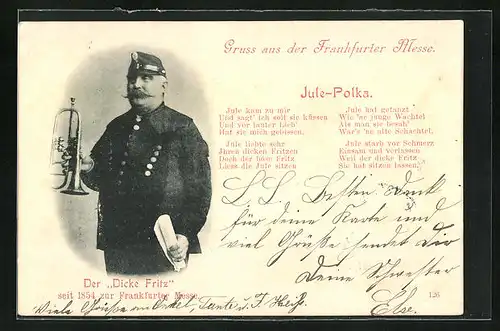 Gruss aus der Frankfurter Messe.
Jule-Polka.
Jule kam zu mir
Und sagt' ich soll sie küssen
Und vor lauter Lieb'
Hat sie mich gebissen.
Jule liebte sehr
Ihren dicken Fritzen
Doch der böse Fritz
Liess die Jule sitzen
Jule hat getanzt
Wie 'ne junge Wachtel
Als man sie besah'
War's 'ne alte Schachtel.
Jule starb vor Schmerz
Einsam und verlassen
Weil der dicke Fritz
Sie hat sitzen lassen.
Besten Dank
für deine Karte und
viel Grüße sendet dir
Deine Schwester
Else.
Der „Dicke Fritz"
seit 1854 zur Frankfurter Messe.
Viele Grüsse an Onkel, Tante u.
126